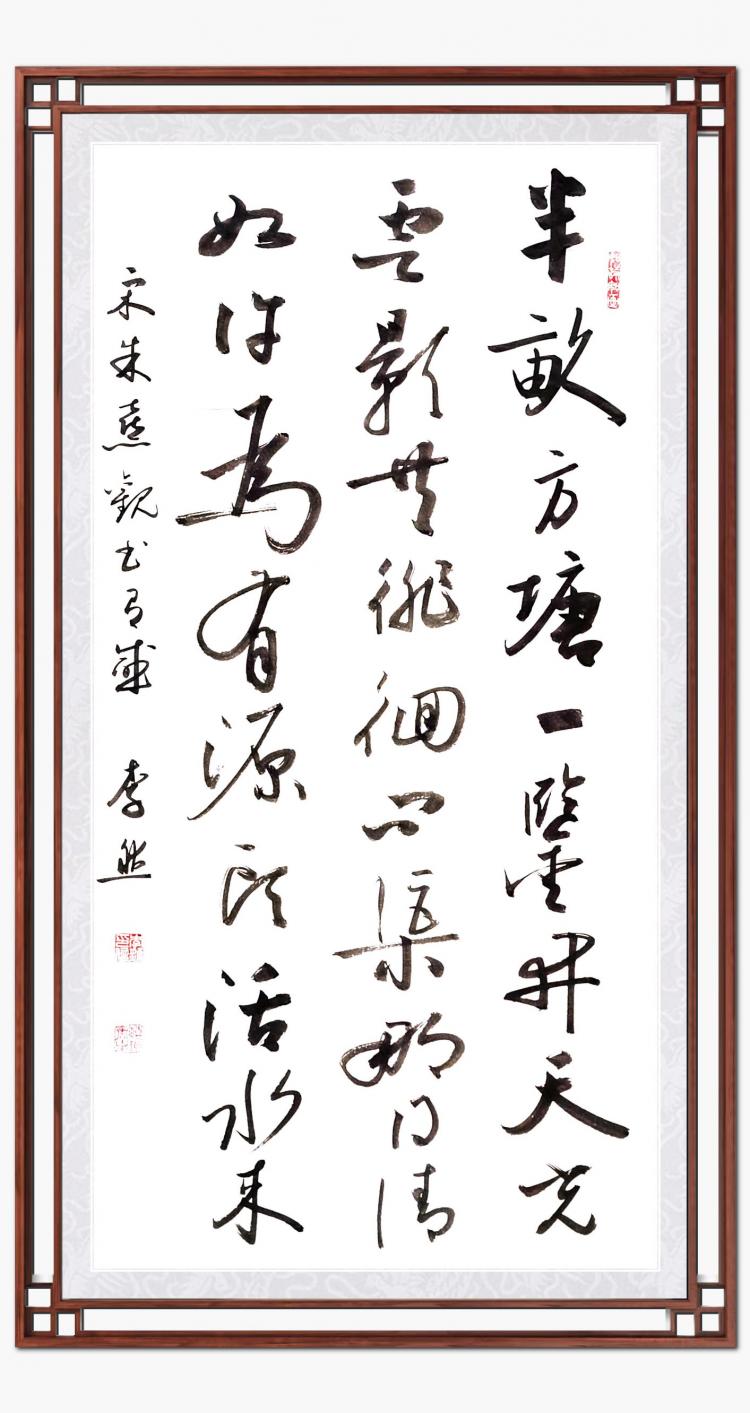 半畝方塘一鑒开天光
雲影共徘徊问渠那得清
如许为有源头活水来
宋朱熹觀书有感 李